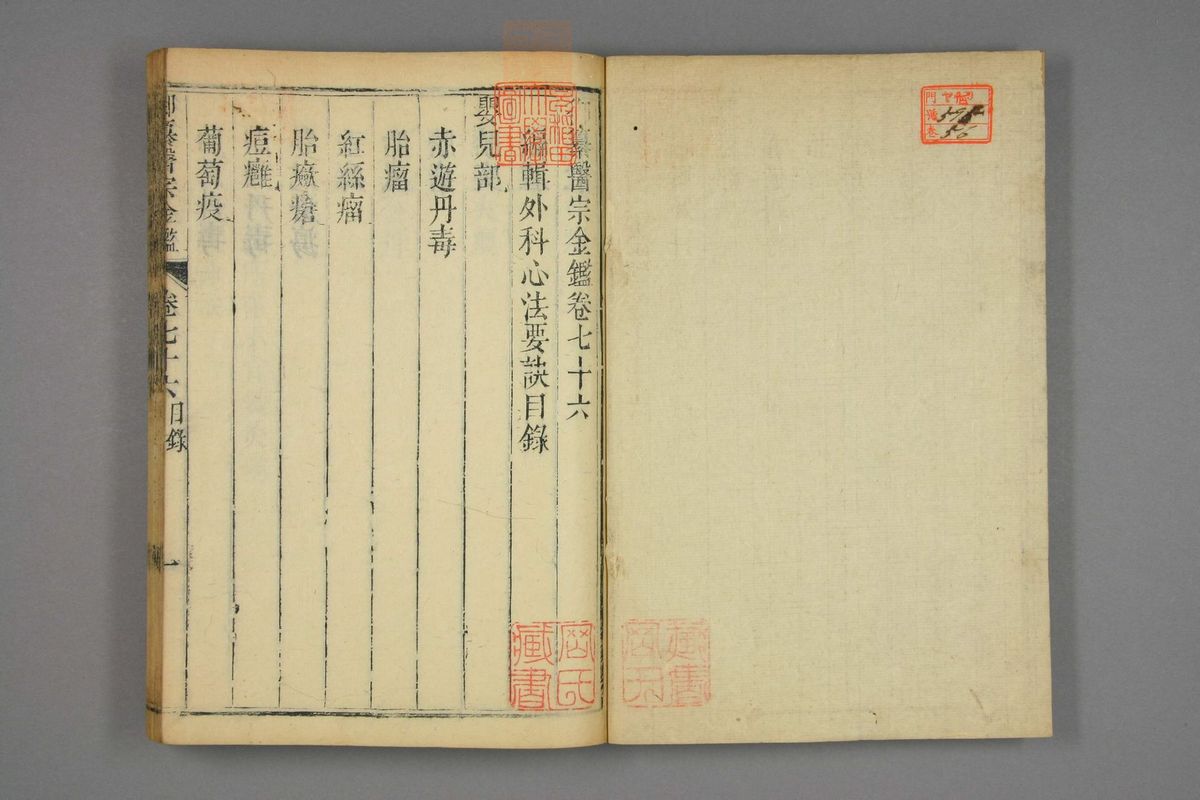 纂醫宗金鑑卷七十六
編輯外科心法要訣目錄
嬰兒部
赤遊丹毒
胎瘤
紅絲瘤
胎癥瘡
痘癰
葡萄疫
御纂醫宗金鑑 卷七十六目錄 一
藏書
門
號
卷